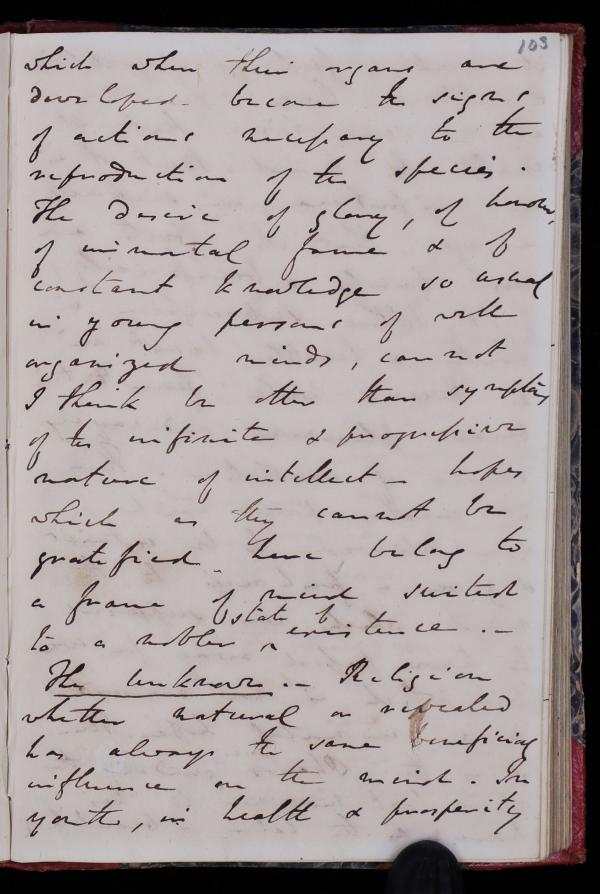 103
which when their organs are
developed - become the signs,
of actions necessary to the
reproduction of the species.
The desire of glory, of honor,
of immortal fame & of
constant knowledge so usual
in young persons of well
organized minds, cannot
I think be other than symptoms
of the infinite & progressive
nature of intellect - hopes
which as they cannot be
gratified here belong to
a frame of mind suited
to a nobler state of existence. -
The Unknown. - Religion
whether natural or revealed
has always the same beneficial
influence on the mind. In
youth, in health & prosperity